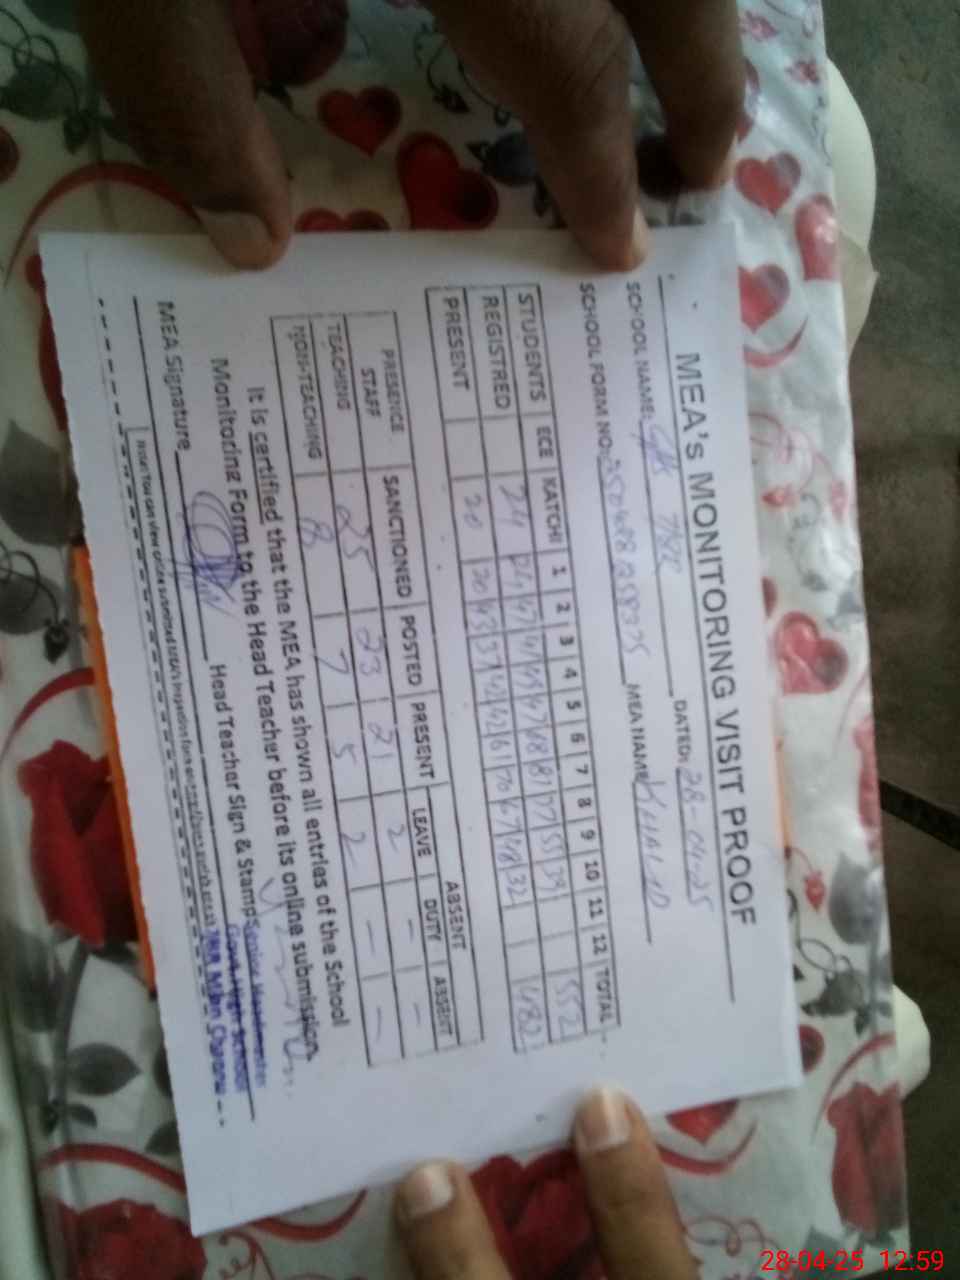 MEA's MONITORING VISIT PROOF
SCHOOL NAME: GHS DATED: 28-04-25
SCHOOL FORM NO: MEA NAME: KHALID
STUDENTS ECE KATCHI 1 2 3 4 5 6 7 8 9 10 11 12 TOTAL
REGISTRED 24 24 47 47 49 47 68 81 77 55 39 552
PRESENT 20 20 43 37 42 42 61 70 67 48 32 482
PRESENCE SANCTIONED POSTED PRESENT ABSENT
STAFF LEAVE DUTY ABSENT
TEACHING 25 23 21 2 - -
NON-TEACHING 8 7 5 2 - -
It is certified that the MEA has shown all entries of the School
Monitoring Form to the Head Teacher before its online submission.
MEA Signature Head Teacher Sign & Stamp
Senior Headmaster
Govt. High School
Mian Channu
Note: You can view online submitted MEA's inspection form
28-04-25 12:59